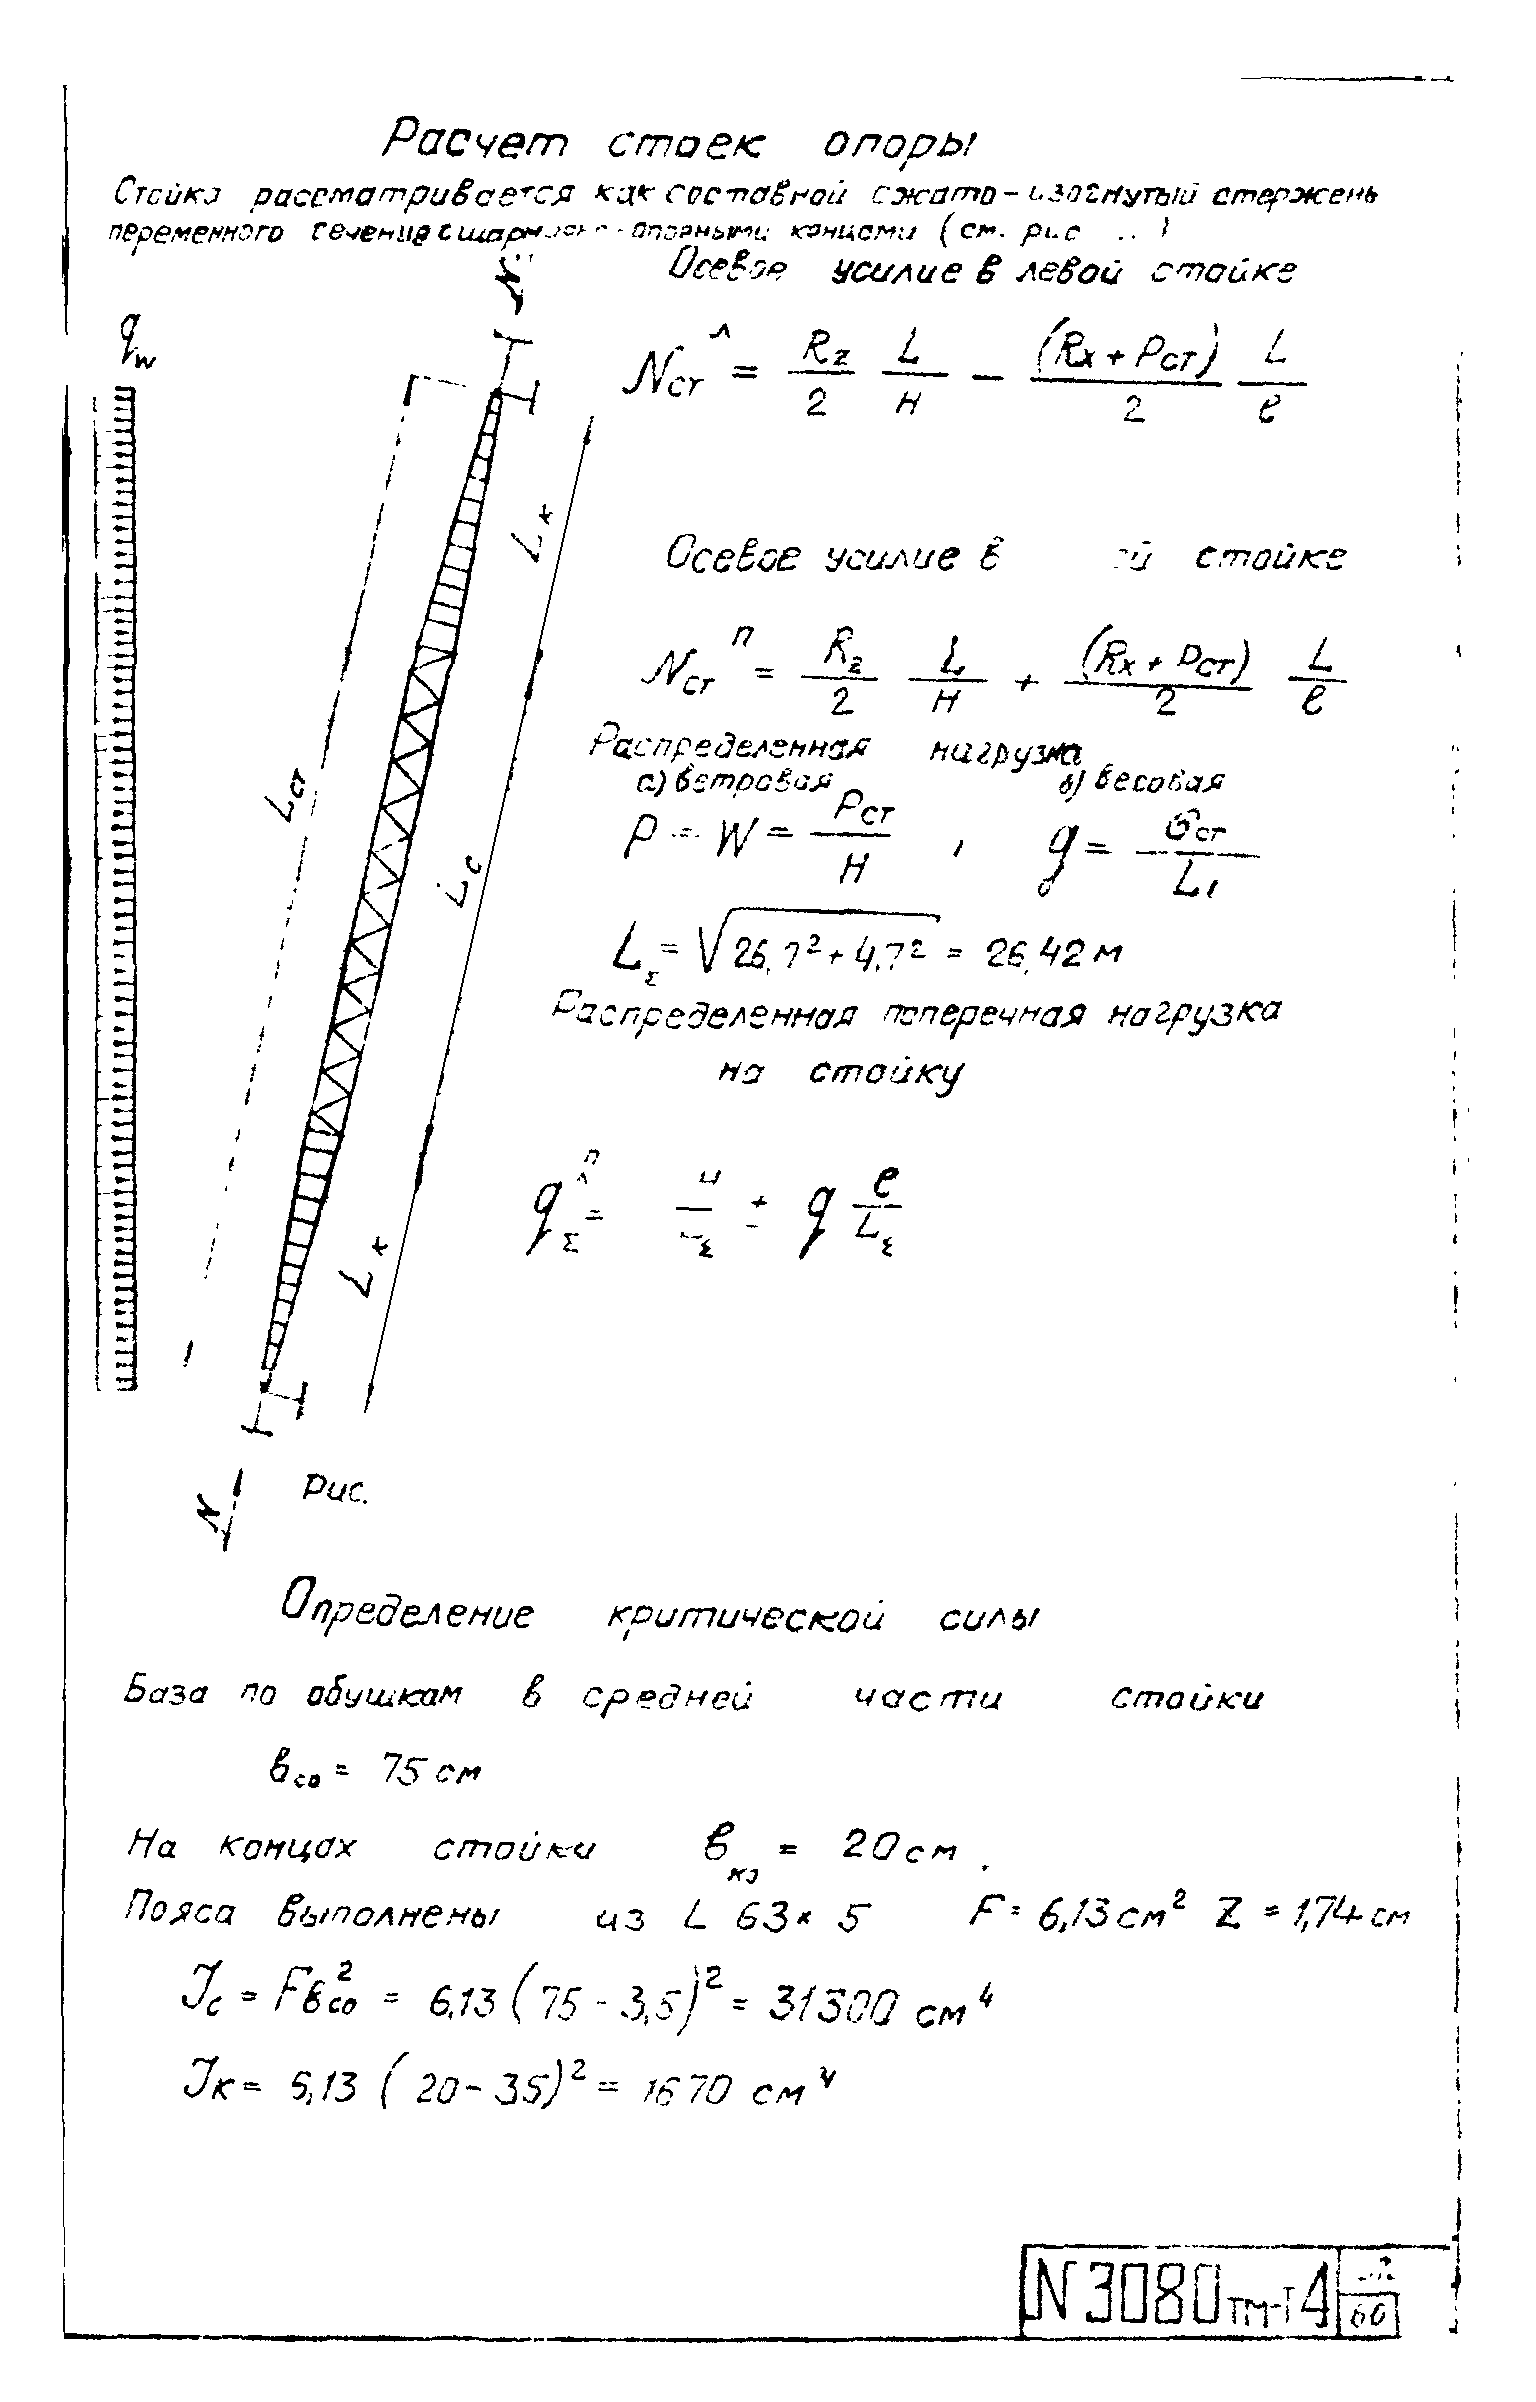 Расчет стоек опоры
Стойка рассматривается как составной сжато-изогнутый стержень
переменного сечения с шарнирно-опорными концами (см. рис ..)
N
Осевое усилие в левой стойке
q_w
N_ст^л = R_z/2 L/H − (R_x + P_ст)/2 L/e
L_к
Осевое усилие в й стойке
N_ст^п = R_z/2 L/H + (R_x + P_ст)/2 L/e
Распределенная нагрузка
а) ветровая б) весовая
L_ст
P = W = P_ст/H , g = G_ст/L_1
L_с
L_Σ = √(26,7² + 4,7²) = 26,42 м
Распределенная поперечная нагрузка
на стойку
q_Σ^(п л) = ± g e/L_Σ
L_к
Рис.
N
Определение критической силы
База по обушкам в средней части стойки
в_со = 75 см
На концах стойки в_кэ = 20 см.
Пояса выполнены из L 63 × 5 F = 6,13 см² Z = 1,74 см
J_c = Fв_со² = 6,13 (75 - 3,5)² = 31300 см⁴
J_к = 6,13 ( 20 - 35)² = 1670 см⁴
N 3080 тм-т4
60